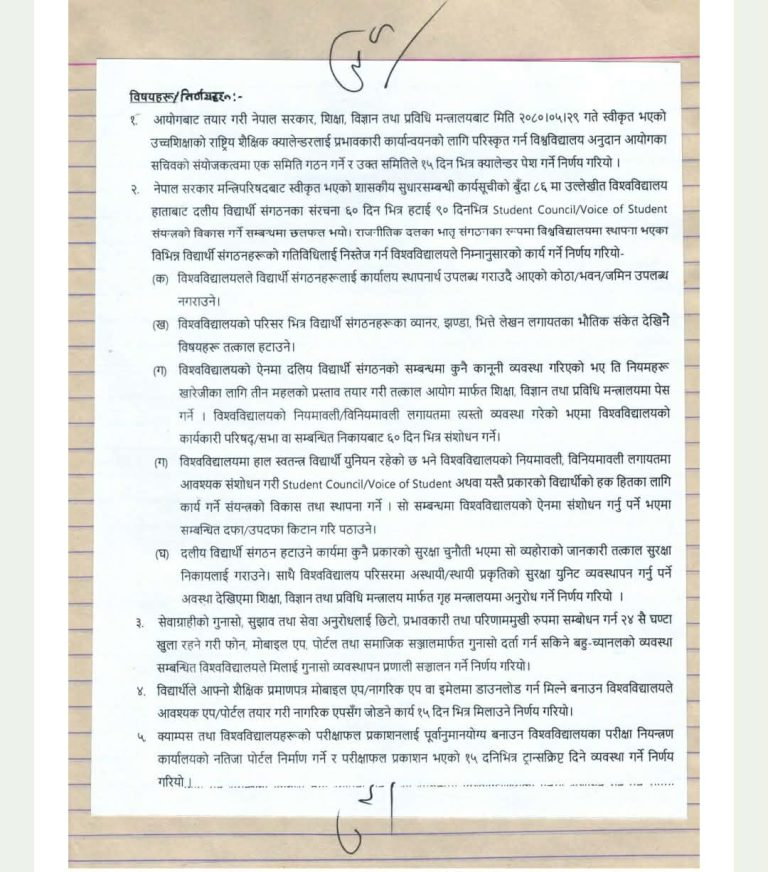 विषयहरू/निर्णयहरू:-
१. आयोगबाट तयार गरी नेपाल सरकार, शिक्षा, विज्ञान तथा प्रविधि मन्त्रालयबाट मिति २०८०।०५।२९ गते स्वीकृत भएको
उच्चशिक्षाको राष्ट्रिय शैक्षिक क्यालेन्डरलाई प्रभावकारी कार्यान्वयनको लागि परिस्कृत गर्न विश्वविद्यालय अनुदान आयोगका
सचिवको संयोजकत्वमा एक समिति गठन गर्ने र उक्त समितिले १५ दिन भित्र क्यालेन्डर पेश गर्ने निर्णय गरियो ।
२. नेपाल सरकार मन्त्रिपरिषदबाट स्वीकृत भएको शासकीय सुधारसम्बन्धी कार्यसूचीको बुँदा ८६ मा उल्लेखीत विश्वविद्यालय
हाताबाट दलीय विद्यार्थी संगठनका संरचना ६० दिन भित्र हटाई ९० दिनभित्र Student Council/Voice of Student
संयन्त्रको विकास गर्ने सम्बन्धमा छलफल भयो। राजनीतिक दलका भातृ संगठनका रूपमा विश्वविद्यालयमा स्थापना भएका
विभिन्न विद्यार्थी संगठनहरूको गतिविधिलाई निस्तेज गर्न विश्वविद्यालयले निम्नानुसारको कार्य गर्ने निर्णय गरियो-
(क) विश्वविद्यालयलले विद्यार्थी संगठनहरूलाई कार्यालय स्थापनार्थ उपलब्ध गराउदै आएको कोठा/भवन/जमिन उपलब्ध
नगराउने।
(ख) विश्वविद्यालयको परिसर भित्र विद्यार्थी संगठनहरूका व्यानर, झण्डा, भित्ते लेखन लगायतका भौतिक संकेत देखिने
विषयहरू तत्काल हटाउने।
(ग) विश्वविद्यालयको ऐनमा दलिय विद्यार्थी संगठनको सम्बन्धमा कुनै कानूनी व्यवस्था गरिएको भए ति नियमहरू
खारेजीका लागि तीन महलको प्रस्ताव तयार गरी तत्काल आयोग मार्फत शिक्षा, विज्ञान तथा प्रविधि मन्त्रालयमा पेस
गर्ने । विश्वविद्यालयको नियमावली/विनियमावली लगायतमा त्यस्तो व्यवस्था गरेको भएमा विश्वविद्यालयको
कार्यकारी परिषद्/सभा वा सम्बन्धित निकायबाट ६० दिन भित्र संशोधन गर्ने।
(ग) विश्वविद्यालयमा हाल स्वतन्त्र विद्यार्थी युनियन रहेको छ भने विश्वविद्यालयको नियमावली, विनियमावली लगायतमा
आवश्यक संशोधन गरी Student Council/Voice of Student अथवा यस्तै प्रकारको विद्यार्थीको हक हितका लागि
कार्य गर्ने संयन्त्रको विकास तथा स्थापना गर्ने । सो सम्बन्धमा विश्वविद्यालयको ऐनमा संशोधन गर्नु पर्ने भएमा
सम्बन्धित दफा/उपदफा किटान गरि पठाउने।
(घ) दलीय विद्यार्थी संगठन हटाउने कार्यमा कुनै प्रकारको सुरक्षा चुनौती भएमा सो व्यहोराको जानकारी तत्काल सुरक्षा
निकायलाई गराउने। साथै विश्वविद्यालय परिसरमा अस्थायी/स्थायी प्रकृतिको सुरक्षा युनिट व्यवस्थापन गर्नु पर्ने
अवस्था देखिएमा शिक्षा, विज्ञान तथा प्रविधि मन्त्रालय मार्फत गृह मन्त्रालयमा अनुरोध गर्ने निर्णय गरियो ।
३. सेवाग्राहीको गुनासो, सुझाव तथा सेवा अनुरोधलाई छिटो, प्रभावकारी तथा परिणाममुखी रुपमा सम्बोधन गर्न २४ सै घण्टा
खुला रहने गरी फोन, मोबाइल एप, पोर्टल तथा सामाजिक सञ्जालमार्फत गुनासो दर्ता गर्न सकिने बहु-च्यानलको व्यवस्था
सम्बन्धित विश्वविद्यालयले मिलाई गुनासो व्यवस्थापन प्रणाली सञ्चालन गर्ने निर्णय गरियो।
४. विद्यार्थीले आफ्नो शैक्षिक प्रमाणपत्र मोबाइल एप/नागरिक एप वा इमेलमा डाउनलोड गर्न मिल्ने बनाउन विश्वविद्यालयले
आवश्यक एप/पोर्टल तयार गरी नागरिक एपसँग जोडने कार्य १५ दिन भित्र मिलाउने निर्णय गरियो।
५. क्याम्पस तथा विश्वविद्यालयहरूको परीक्षाफल प्रकाशनलाई पूर्वानुमानयोग्य बनाउन विश्वविद्यालयका परीक्षा नियन्त्रण
कार्यालयको नतिजा पोर्टल निर्माण गर्ने र परीक्षाफल प्रकाशन भएको १५ दनिभित्र ट्रान्सक्रिप्ट दिने व्यवस्था गर्ने निर्णय
गरियो ।